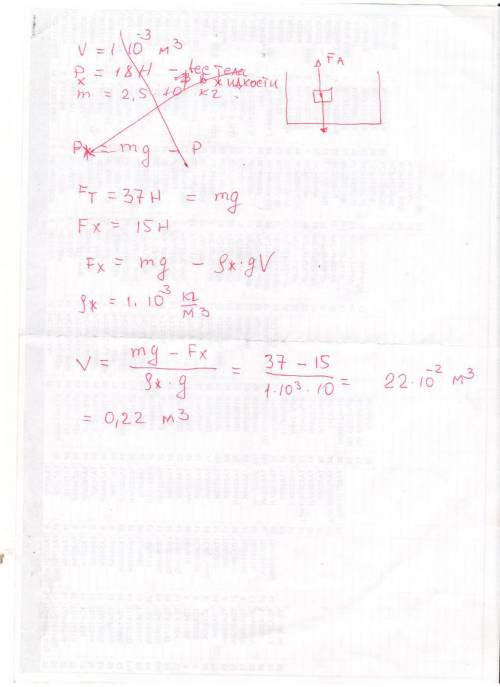 V = 1·10⁻³ м³
Pж = 18Н – вес тела в жидкости
m = 2,5·10 кг
F_A
Pж = mg – P
Fт = 37Н = mg
Fж = 15Н
Fж = mg – ρж·gV
ρж = 1·10⁻³ кг/м³
V = (mg – Fж)/(ρж·g) = (37 – 15)/(1·10³·10) = 22·10⁻² м³
= 0,22 м³